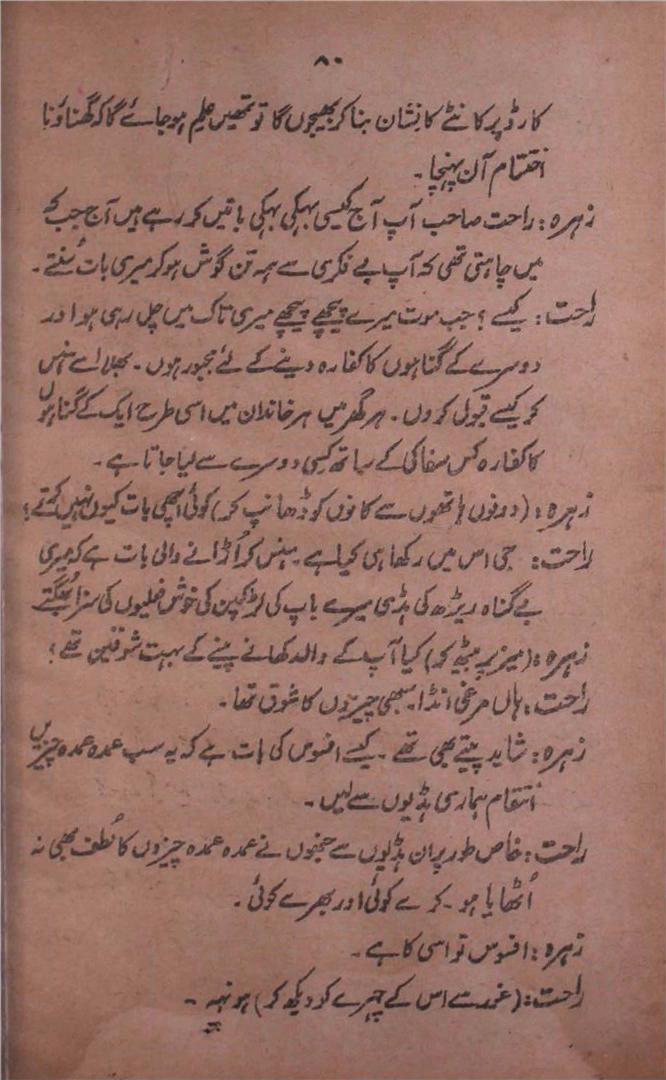 ۸۰
کارڈ پر کانٹے کا نشان بنا کر بھیجوں گا تو تمھیں علم ہو جائے گا کہ گھناؤنا
اختتام آن پہنچا۔
زہرہ: راحت صاحب آپ آج کیسی بہکی بہکی باتیں کر رہے ہیں آج جب کہ
میں چاہتی تھی کہ آپ بے فکری سے ہمہ تن گوش ہو کر میری بات سُنتے۔
راحت: کیسے؟ جب موت میرے پیچھے پیچھے میری تاک میں چل رہی ہو اور
دوسرے کے گناہوں کا کفارہ دینے کے لئے مجبور ہوں۔ بھلا اسے ہنس
کر کیسے قبول کروں۔ ہر گھر میں ہر خاندان میں اسی طرح ایک کے گناہوں
کا کفارہ کس سفاکی کے ساتھ کسی دوسرے سے لیا جاتا ہے۔
زہرہ: (دونوں ہاتھوں سے کانوں کو ڈھانپ کر) کوئی اچھی بات کیوں نہیں کرتے؟
راحت: جی اس میں رکھا ہی کیا ہے۔ ہنس کر اُڑانے والی بات ہے کہ میری
بے گناہ ریڑھ کی ہڈی میرے باپ کی لڑکپن کی خوش فعلیوں کی سزا بھگتے
زہرہ: (میز پر بیٹھ کر) کیا آپ کے والد کھانے پینے کے بہت شوقین تھے؟
راحت: ہاں مرغی انڈا۔ سبھی چیزوں کا شوق تھا۔
زہرہ: شاید پیتے بھی تھے۔ کیسے افسوس کی بات ہے کہ یہ سب عمدہ عمدہ چیزیں
انتقام ہماری ہڈیوں سے لیں۔
راحت: خاص طور پر ان ہڈیوں سے جنھوں نے عمدہ عمدہ چیزوں کا لُطف بھی نہ
اُٹھایا ہو۔ کرے کوئی اور بھرے کوئی۔
زہرہ: افسوس تو اسی کا ہے۔
راحت: (غور سے اس کے چہرے کو دیکھ کر) ہونہہ۔